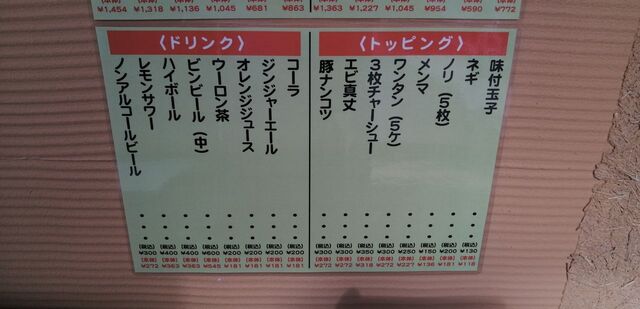 (本体) ¥772
(本体) ¥590
(本体) ¥954
(本体) ¥1,045
(本体) ¥1,227
(本体) ¥1,363
(本体) ¥863
(本体) ¥681
(本体) ¥1,045
(本体) ¥1,136
(本体) ¥1,318
(本体) ¥1,454
〈トッピング〉
味付玉子・・・(税込) ¥130 (本体) ¥118
ネギ・・・(税込) ¥200 (本体) ¥181
ノリ(5枚)・・・(税込) ¥150 (本体) ¥136
メンマ・・・(税込) ¥250 (本体) ¥227
ワンタン(5ケ)・・・(税込) ¥300 (本体) ¥272
3枚チャーシュー・・・(税込) ¥350 (本体) ¥318
エビ真丈・・・(税込) ¥300 (本体) ¥272
豚ナンコツ・・・(税込) ¥300 (本体) ¥272
〈ドリンク〉
コーラ・・・(税込) ¥200 (本体) ¥181
ジンジャーエール・・・(税込) ¥200 (本体) ¥181
オレンジジュース・・・(税込) ¥200 (本体) ¥181
ウーロン茶・・・(税込) ¥200 (本体) ¥181
ビンビール(中)・・・(税込) ¥600 (本体) ¥545
ハイボール・・・(税込) ¥400 (本体) ¥363
レモンサワー・・・(税込) ¥400 (本体) ¥363
ノンアルコールビール・・・(税込) ¥300 (本体) ¥272